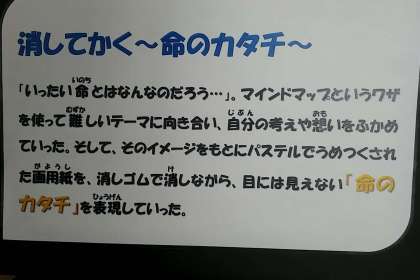 消してかく～命のカタチ～
「いったい命とはなんなのだろう…」。マインドマップというワザ
を使って難しいテーマに向き合い、自分の考えや想いをふかめ
ていった。そして、そのイメージをもとにパステルでうめつくされ
た画用紙を、消しゴムで消しながら、目には見えない「命の
カタチ」を表現していった。